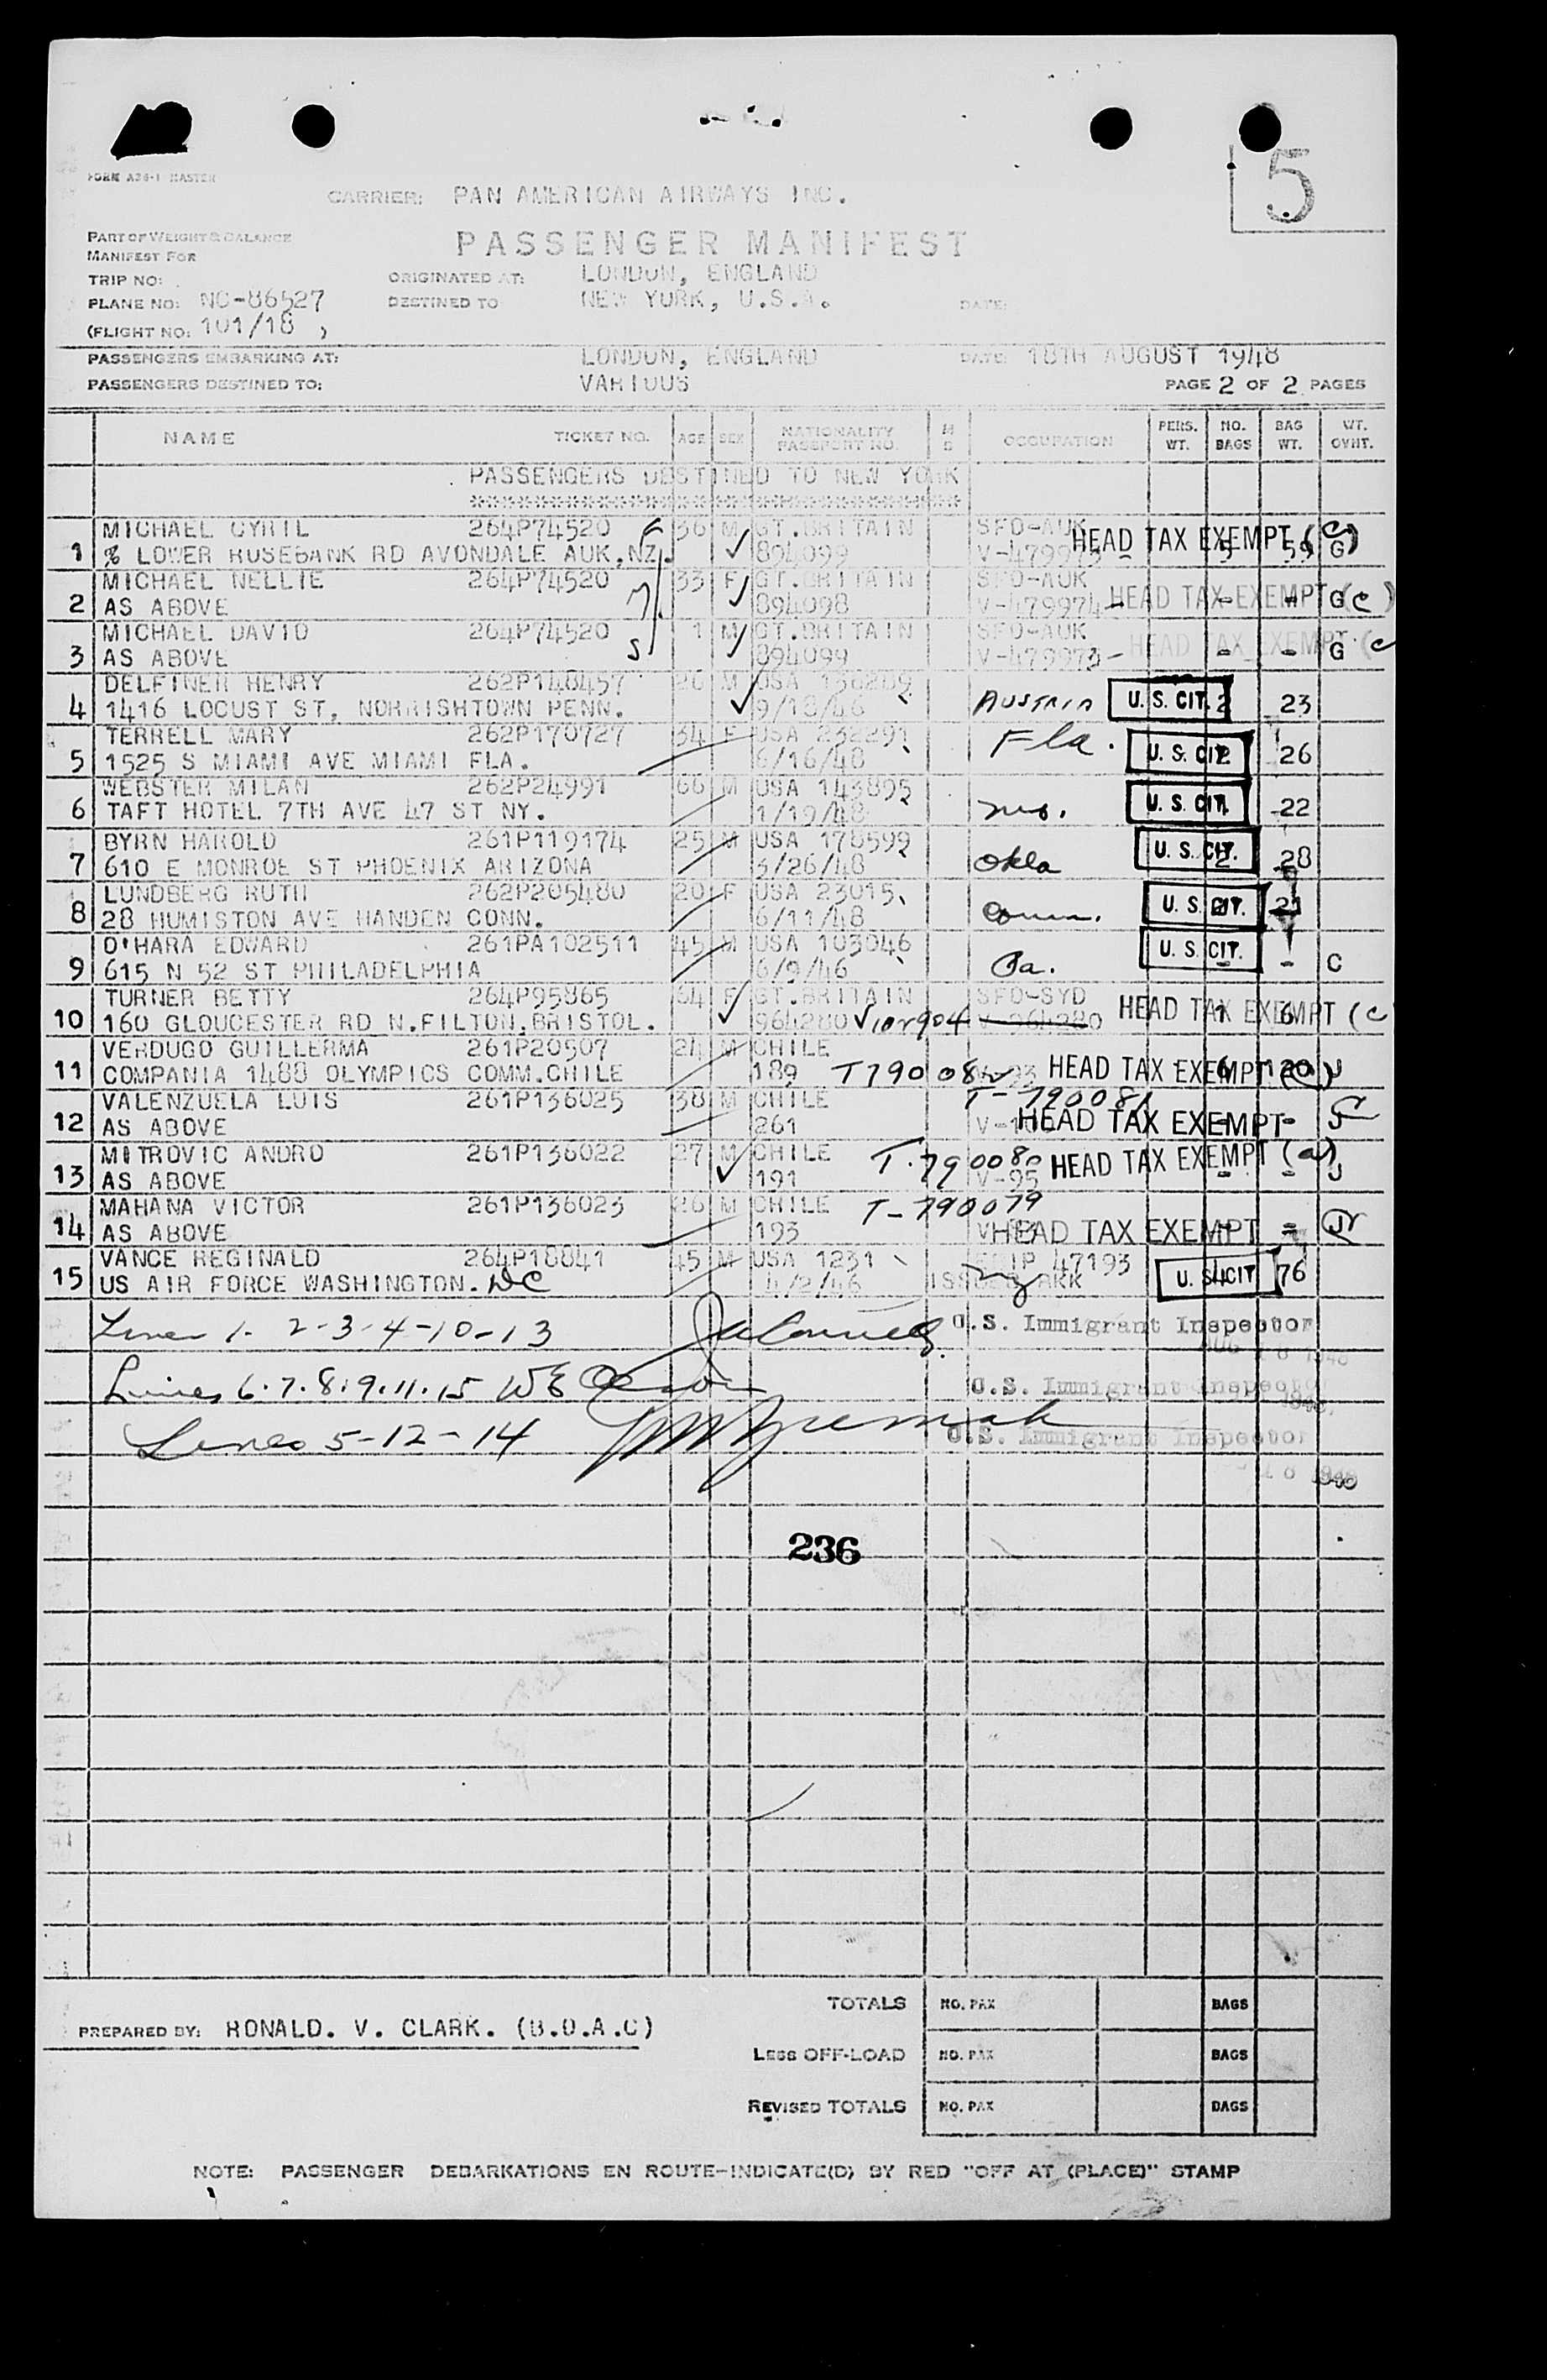 FORM A26-1 MASTER
5
CARRIER: PAN AMERICAN AIRWAYS INC.
PART OF WEIGHT & BALANCE
MANIFEST FOR
PASSENGER MANIFEST
TRIP NO: ORIGINATED AT: LONDON, ENGLAND
PLANE NO: NC-86527 DESTINED TO NEW YORK, U.S.A. DATE:
(FLIGHT NO: 101/18 )
PASSENGERS EMBARKING AT: LONDON, ENGLAND DATE: 18TH AUGUST 1948
PASSENGERS DESTINED TO: VARIOUS PAGE 2 OF 2 PAGES
NAME TICKET NO. AGE SEX NATIONALITY PASSPORT NO. OCCUPATION PERS. WT. NO. BAGS BAG WT. WT. OVHT.
PASSENGERS DESTINED TO NEW YORK
MICHAEL CYRIL 264P74520 F 36 M GT.BRITAIN SFO-AUK HEAD TAX EXEMPT (C)
1 % LOWER ROSEBANK RD AVONDALE AUK.NZ. 894099 V-479973 - 5 59 G
MICHAEL NELLIE 264P74520 M 33 F GT.BRITAIN SFO-AUK HEAD TAX EXEMPT (C)
2 AS ABOVE 894098 V-479974 - - - G
MICHAEL DAVID 264P74520 1 M GT.BRITAIN SFO-AUK HEAD TAX EXEMPT (C
3 AS ABOVE S 894099 V-479973 - - - G
DELFINER HENRY 262P148457 26 M USA 136209
4 1416 LOCUST ST, NORRISHTOWN PENN. 9/18/46 AUSTRIA U. S. CIT. 2 23
TERRELL MARY 262P170727 34 F USA 232291 Fla.
5 1525 S MIAMI AVE MIAMI FLA. 6/16/48 U. S. CIT. 2 26
WEBSTER MILAN 262P24991 66 M USA 143895
6 TAFT HOTEL 7TH AVE 47 ST NY. 1/19/48 U. S. CIT. 1 22
BYRN HAROLD 261P119174 25 M USA 178599
7 610 E MONROE ST PHOENIX ARIZONA 3/26/48 Okla U. S. CIT. 2 28
LUNDBERG RUTH 262P205480 20 F USA 23015
8 28 HUMISTON AVE HANDEN CONN. 6/11/48 Conn. U. S. CIT. 21
O'HARA EDWARD 261PA102511 45 M USA 103046 U. S. CIT.
9 615 N 52 ST PHILADELPHIA 6/9/46 Pa. - - C
TURNER BETTY 264P95865 64 F GT.BRITAIN SFO-SYD HEAD TAX EXEMPT (C
10 160 GLOUCESTER RD N.FILTON.BRISTOL. 964280 V-964280 1 6
VERDUGO GUILLERMA 261P20507 24 M CHILE HEAD TAX EXEMPT (C)
11 COMPANIA 1488 OLYMPICS COMM.CHILE 189 T790082 V-93 6 120 J
VALENZUELA LUIS 261P136025 38 M CHILE T-790081
12 AS ABOVE 261 HEAD TAX EXEMPT - J
MITROVIC ANDRO 261P136022 27 M CHILE T-790080 HEAD TAX EXEMPT (a)
13 AS ABOVE 191 V-95 - - J
MAHANA VICTOR 261P136023 26 M CHILE T-790079
14 AS ABOVE 193 HEAD TAX EXEMPT - J
VANCE REGINALD 264P18841 45 M USA 1231 47193
15 US AIR FORCE WASHINGTON. DC 4/2/46 ISSUED U. S. CIT 4 76
Lines 1-2-3-4-10-13 U.S. Immigrant Inspector
Lines 6.7.8.9.11.15 U.S. Immigrant Inspector
Lines 5-12-14 U.S. Immigrant Inspector
236
TOTALS NO. PAX BAGS
PREPARED BY: RONALD. V. CLARK. (B.O.A.C)
LESS OFF-LOAD NO. PAX BAGS
REVISED TOTALS NO. PAX BAGS
NOTE: PASSENGER DEBARKATIONS EN ROUTE-INDICATE(D) BY RED "OFF AT (PLACE)" STAMP